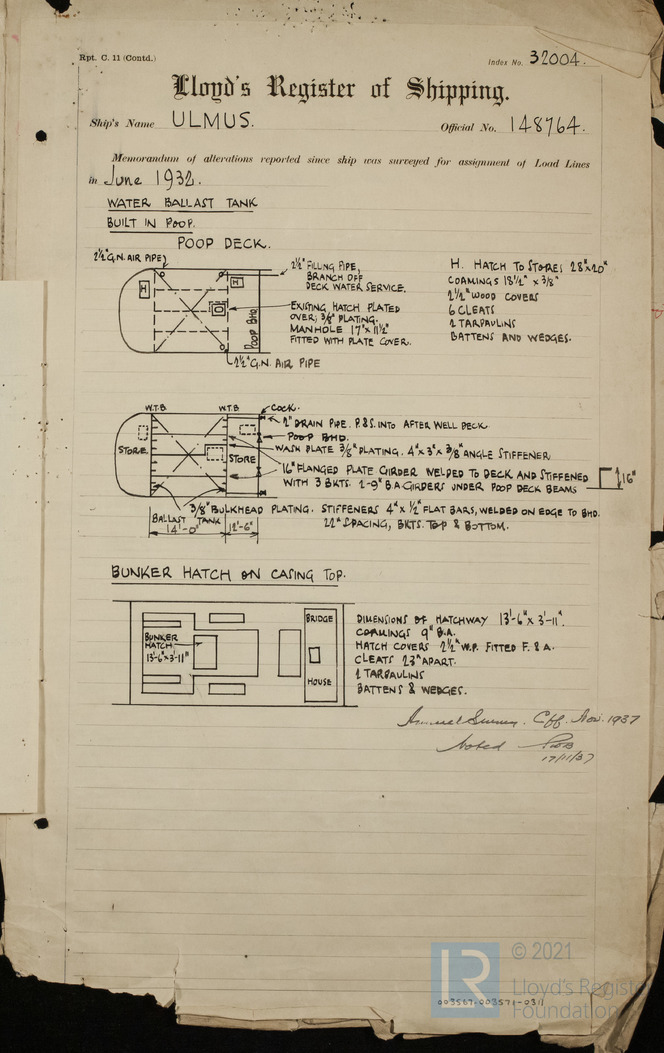 Rpt. C. 11 (Contd.)
Index No. 32004.
Lloyd's Register of Shipping.
Ship's Name ULMUS.
Official No. 148764.
Memorandum of alterations reported since ship was surveyed for assignment of Load Lines
in June 1932.
WATER BALLAST TANK
BUILT IN POOP.
POOP DECK.
2½" G.N. AIR PIPE
H
H
POOP BHD
2½" G.N. AIR PIPE
2½" FILLING PIPE,
BRANCH OFF
DECK WATER SERVICE.
EXISTING HATCH PLATED
OVER; 3/8" PLATING.
MANHOLE 17" x 11½"
FITTED WITH PLATE COVER.
H. HATCH TO STORE; 28" x 20"
COAMINGS 18½" x 3/8"
2½" WOOD COVERS
6 CLEATS
2 TARPAULINS
BATTENS AND WEDGES.
W.T.B.
W.T.B
COCK.
2" DRAIN PIPE. P.&S. INTO AFTER WELL DECK
POOP BHD.
WASH PLATE 3/8" PLATING. 4" x 3" x 3/8" ANGLE STIFFENER
STORE
STORE
16" FLANGED PLATE GIRDER WELDED TO DECK AND STIFFENED
WITH 3 BKTS. 2-9" B.A. GIRDERS UNDER POOP DECK BEAMS
16"
3/8" BULKHEAD PLATING. STIFFENERS 4" x ½" FLAT BARS, WELDED ON EDGE TO BHD.
22" SPACING, BKTS. TOP & BOTTOM.
BALLAST TANK
14'-0"
12'-6"
BUNKER HATCH ON CASING TOP.
BUNKER
HATCH
13'-6" x 3'-11"
BRIDGE
HOUSE
DIMENSIONS OF HATCHWAY 13'-6" x 3'-11".
COAMINGS 9" B.A.
HATCH COVERS 2½" W.P. FITTED F. & A.
CLEATS 23" APART.
2 TARPAULINS
BATTENS & WEDGES.
Annual Survey. Cff. Nov. 1937
Noted
17/11/37
© 2021
Lloyd's Register
Foundation
003567-003571-0311